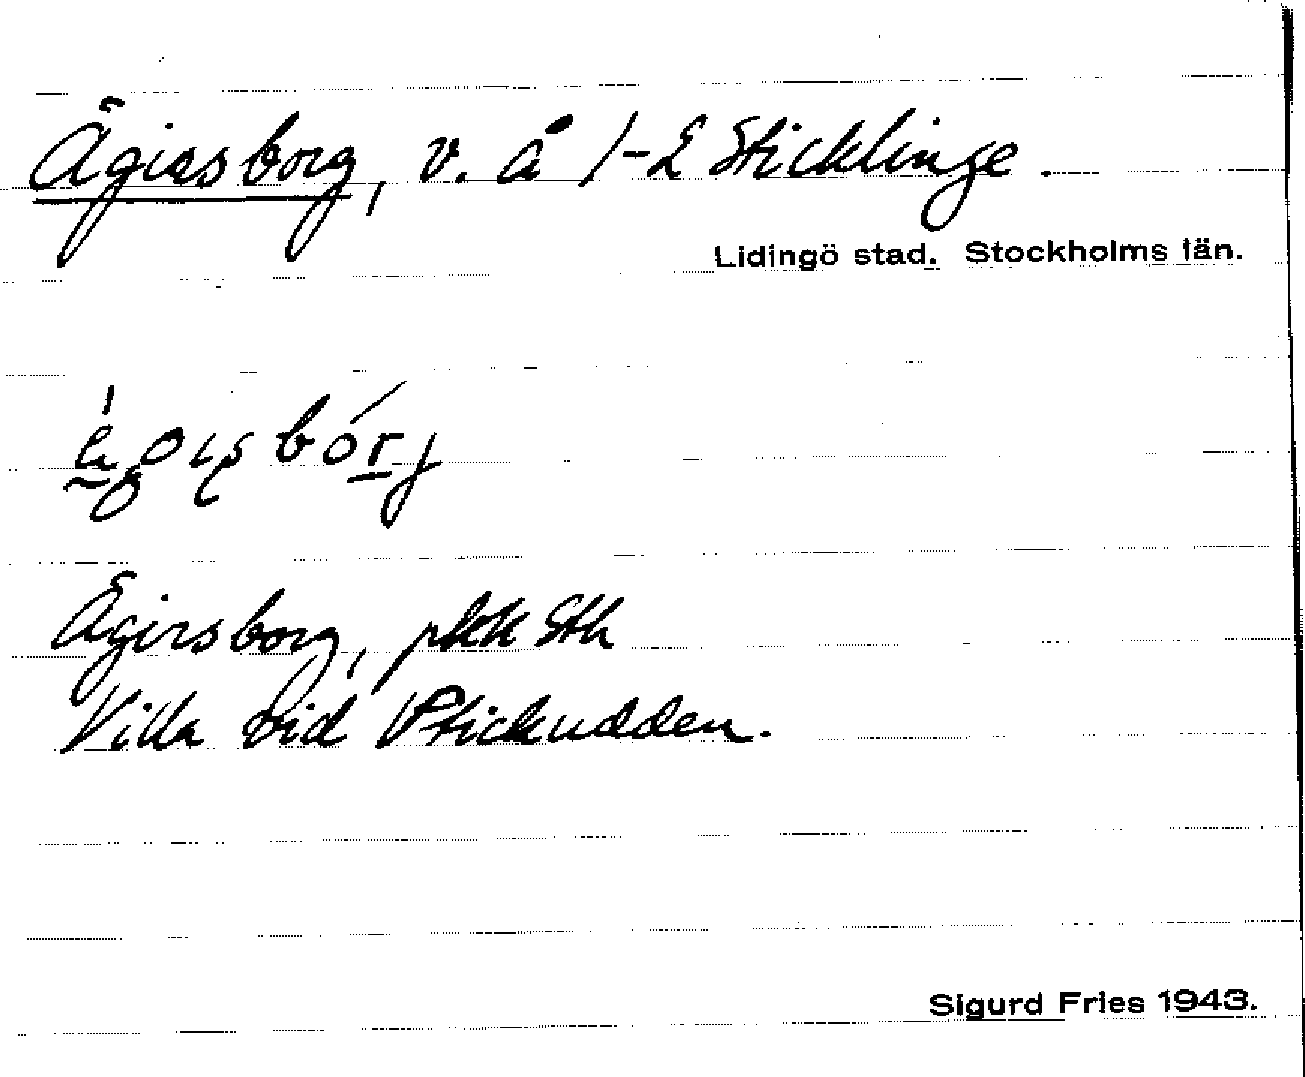 Ägirsborg, v. å 1-2 Sticklinge.
Lidingö stad. Stockholms län.
Ägirsborg, pkk Sth
Villa vid Sticku­dden.
Sigurd Fries 1943.